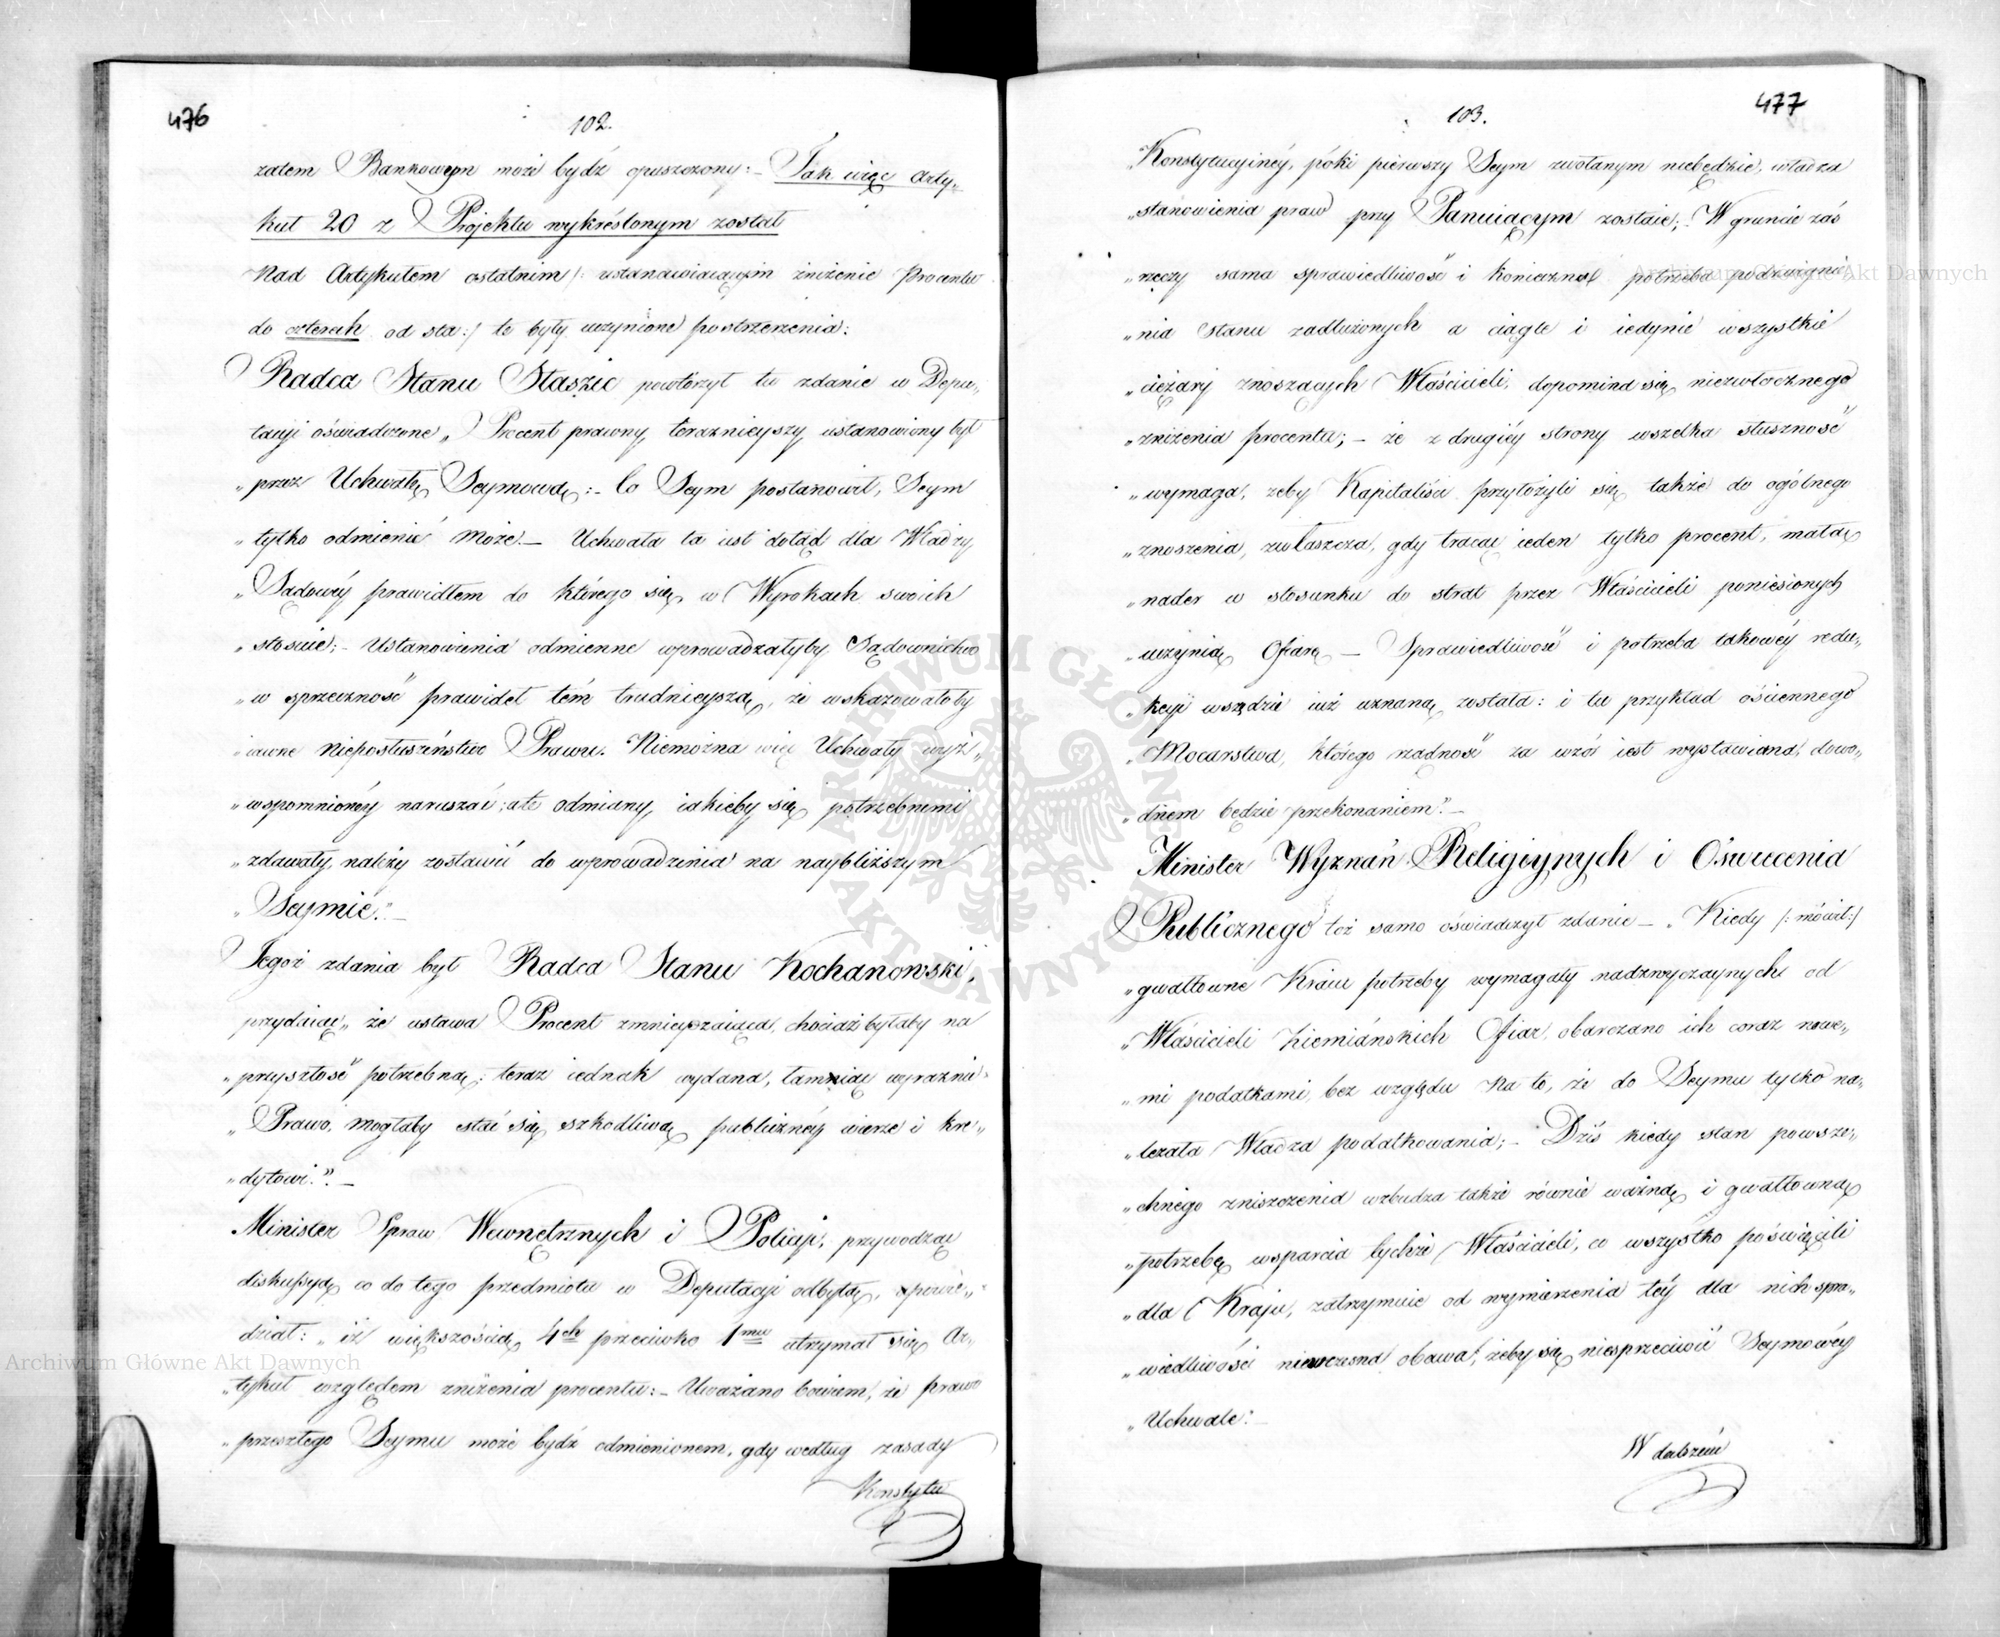 476
102.
zatem Bankowym może bydź opuszczony: – Tak więc Arty„
kuł 20 z Projektu wykreślonym został
Nad Artykułem ostatnim /: ustanawiaiącym zniżenie Procentu
do czterech od sta :/ te były uczynione postrzeżenia:
Radca Stanu Staszic powtórzył tu zdanie w Depu„
tacyi oświadczone „Procent prawny, teraznieyszy, ustanowiony był
„przez Uchwałę Seymową: – Co Seym postanowił, Seym
„tylko odmienić może. – Uchwała ta iest dotąd dla Władzy
„Sądowéy prawidłem do którego się w Wyrokach swoich
„stosuie; – Ustanowienia odmienne wprowadzałyby Sądownictwo
„w sprzeczność prawideł tém trudnieyszą, że wskazowałoby
„iawne nieposłuszeństwo Prawu. Niemożna więc Uchwały wyż„
„wspomnionéy naruszać; ale odmiany, iakieby się potrzebnemi
„zdawały, należy zostawić do wprowadzenia na naybliższym
„Seymie.” –
Tegoż zdania był Radca Stanu Kochanowski,
przydaiąc „że ustawa Procent zmnieyszaiąca, chociażbytaby na
„przyszłość potrzebną; teraz iednak wydana, łamiąc wyraźnie
„Prawo, mogłaby stać się szkodliwą publicznéy wierze i kre„
„dytowi.” –
Minister Spraw Wewnętrznych i Policyi, przywodząc
diskussyą co do tego przedmiotu w Deputacyi odbytą, powie„
dział: „iż większością 4ch przeciwko 1mu utrzymał się Ar„
„tykuł względem zniżenia procentu: – Uważano bowiem, że prawo
„przeszłego Seymu może bydź odmienionem, gdy według zasady
Konstytu
477
103.
„Konstytucyinéy, póki pierwszy Seym zwołanym niebędzie, władza
„stanowienia praw przy Panuiącym zostaie; – W gruncie zaś
„rzeczy sama sprawiedliwość i konieczna potrzeba podzwignie„
„nia stanu zadłużonych a ciągle i iedynie wszystkie
„ciężary znoszących Właścicieli, dopomina się niezwłocznego
„zniżenia procentu; – że z drugiéy strony wszelka słuszność
„wymaga, żeby Kapitaliści przyłożyli się także do ogólnego
„znoszenia, zwłaszcza, gdy tracąc ieden tylko procent, małą
„nader w stosunku do strat przez Właścicieli poniesionych
„uczynią Ofiarę – Sprawiedliwość i potrzeba takowéy redu„
„kcyi wszędzie iuż uznaną została: i tu przykład ościennego
„Mocarstwa, którego rządność za wzór iest wystawiana, dowo„
„dnem będzie przekonaniem.” –
Minister Wyznań Religiynych i Oświecenia
Publicznego toż samo oświadczył zdanie – „Kiedy /: mówił :/
„gwałtowne Kraiu potrzeby wymagały nadzwyczaynych od
„Właścicieli Ziemiańskich Ofiar, obarczano ich coraz nowe„
„mi podatkami, bez względu na to, że do Seymu tylko na„
„leżała Władza podatkowania; – Dziś kiedy stan powsze„
„chnego zniszczenia wzbudza także równie ważną i gwałtowną
„potrzebę wsparcia tychże Właścicieli, co wszystko poświęcili
„dla Kraju, zatrzymuie od wymierzenia téy dla nich spra„
„wiedliwości niewczesna obawa, żeby się niesprzeciwić Seymowéy
„Uchwale: –
W dalszém
Archiwum Główne Akt Dawnych
Archiwum Główne Akt Dawnych
ARCHIWUM GŁÓWNE AKT DAWNYCH